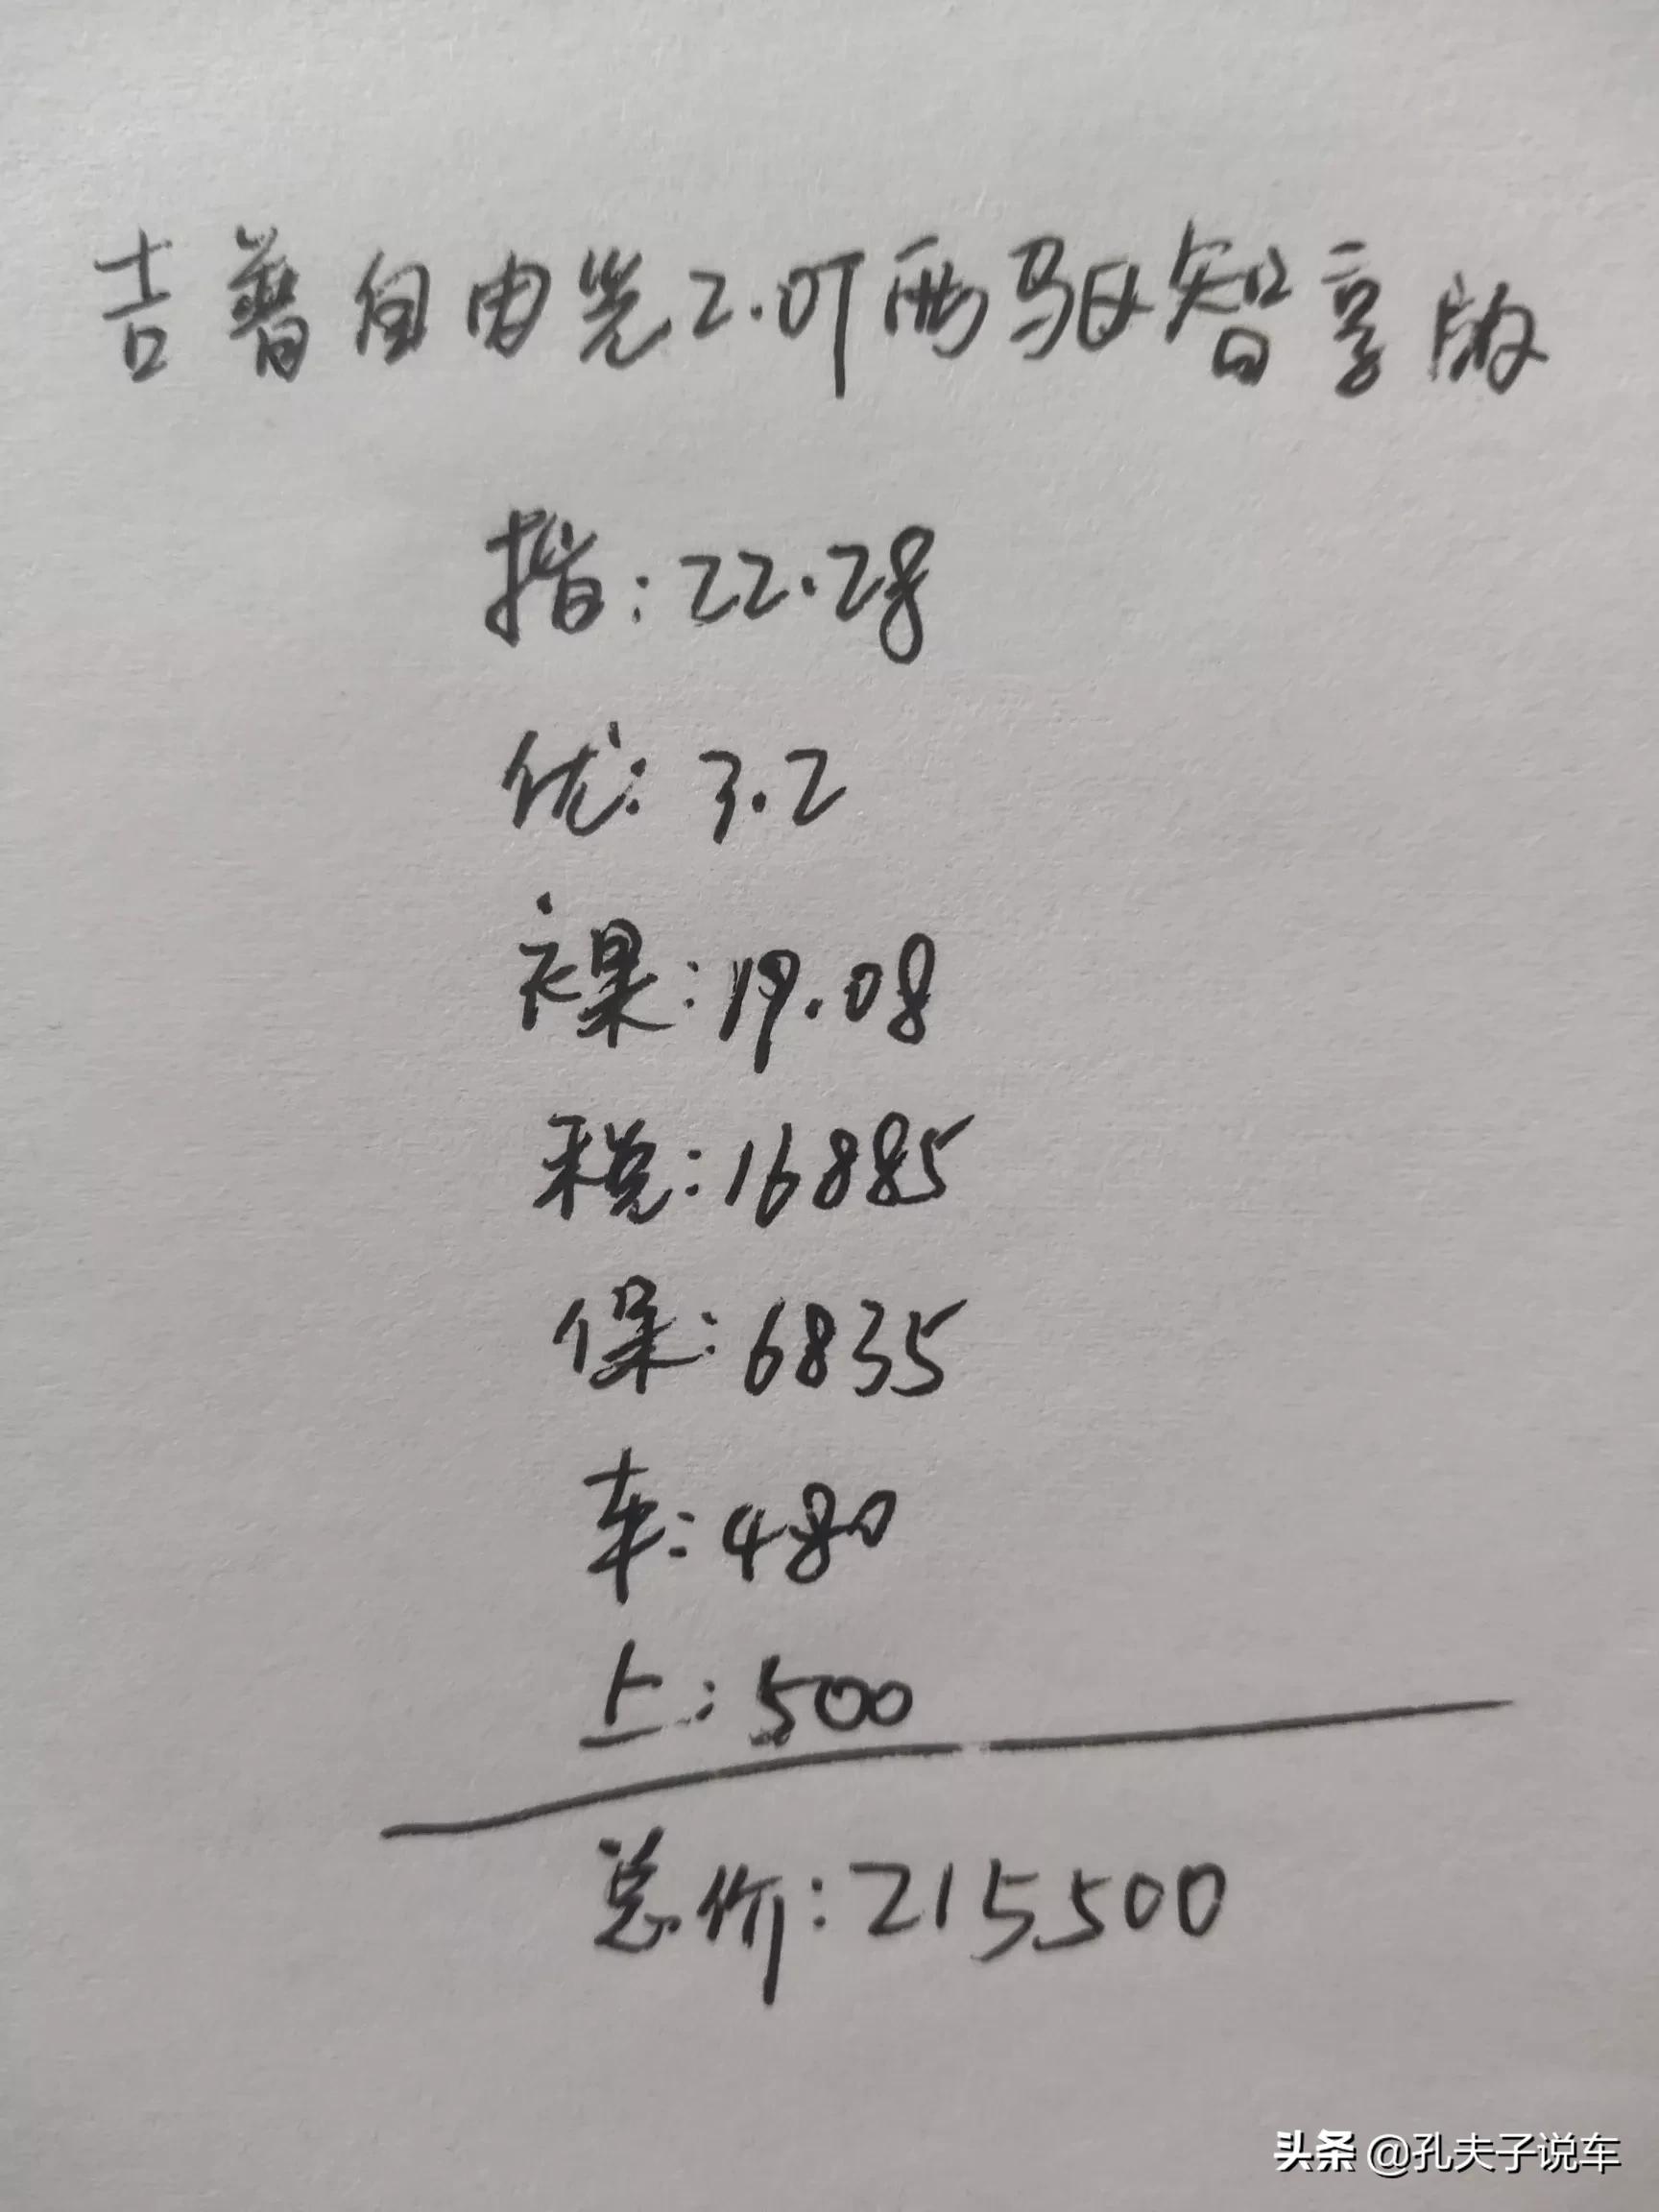 吉普自由光2.0T两驱智享版
指:22.28
优:3.2
裸:19.08
税:16885
保:6835
车:480
上:500
总价:215500
头条 @孔夫子说车